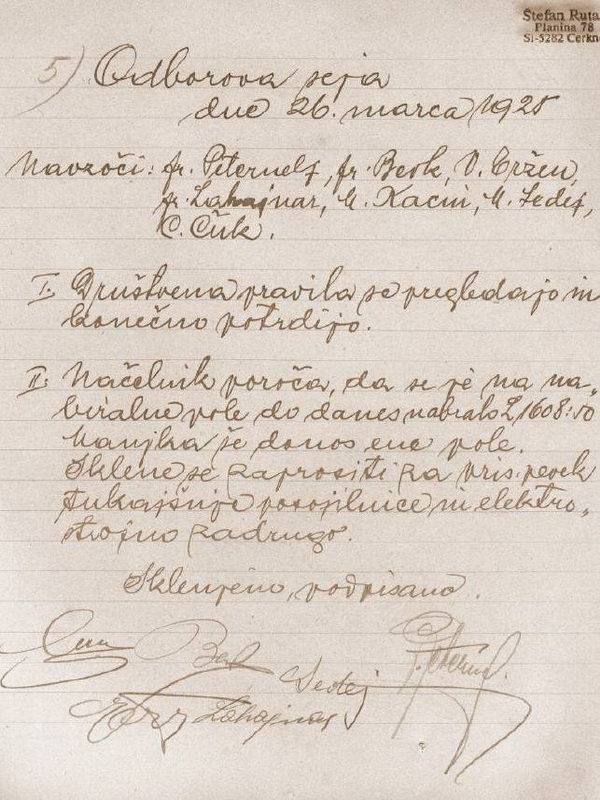 Štefan Ruta
Planina 78
SI-5282 Cerkno
5) Odborova seja
dne 26. marca 1925
Navzoči: fr. Peternelj, fr. Bevk, V. Eržen,
fr. Lahajnar, M. Kacin, M. Sedej,
C. Čuk.
I. Društvena pravila se pregledajo in
konečno potrdijo.
II. Načelnik poroča, da se je na na-
biralne pole do danes nabralo L 1608:50
Manjka še donos ene pole.
Sklene se zaprositi za prispevek
tukajšnje posojilnice in elektro-
strojno zadrugo.
Sklenjeno, podpisano.
Bevk
Peternelj
Sedej
Lahajnar